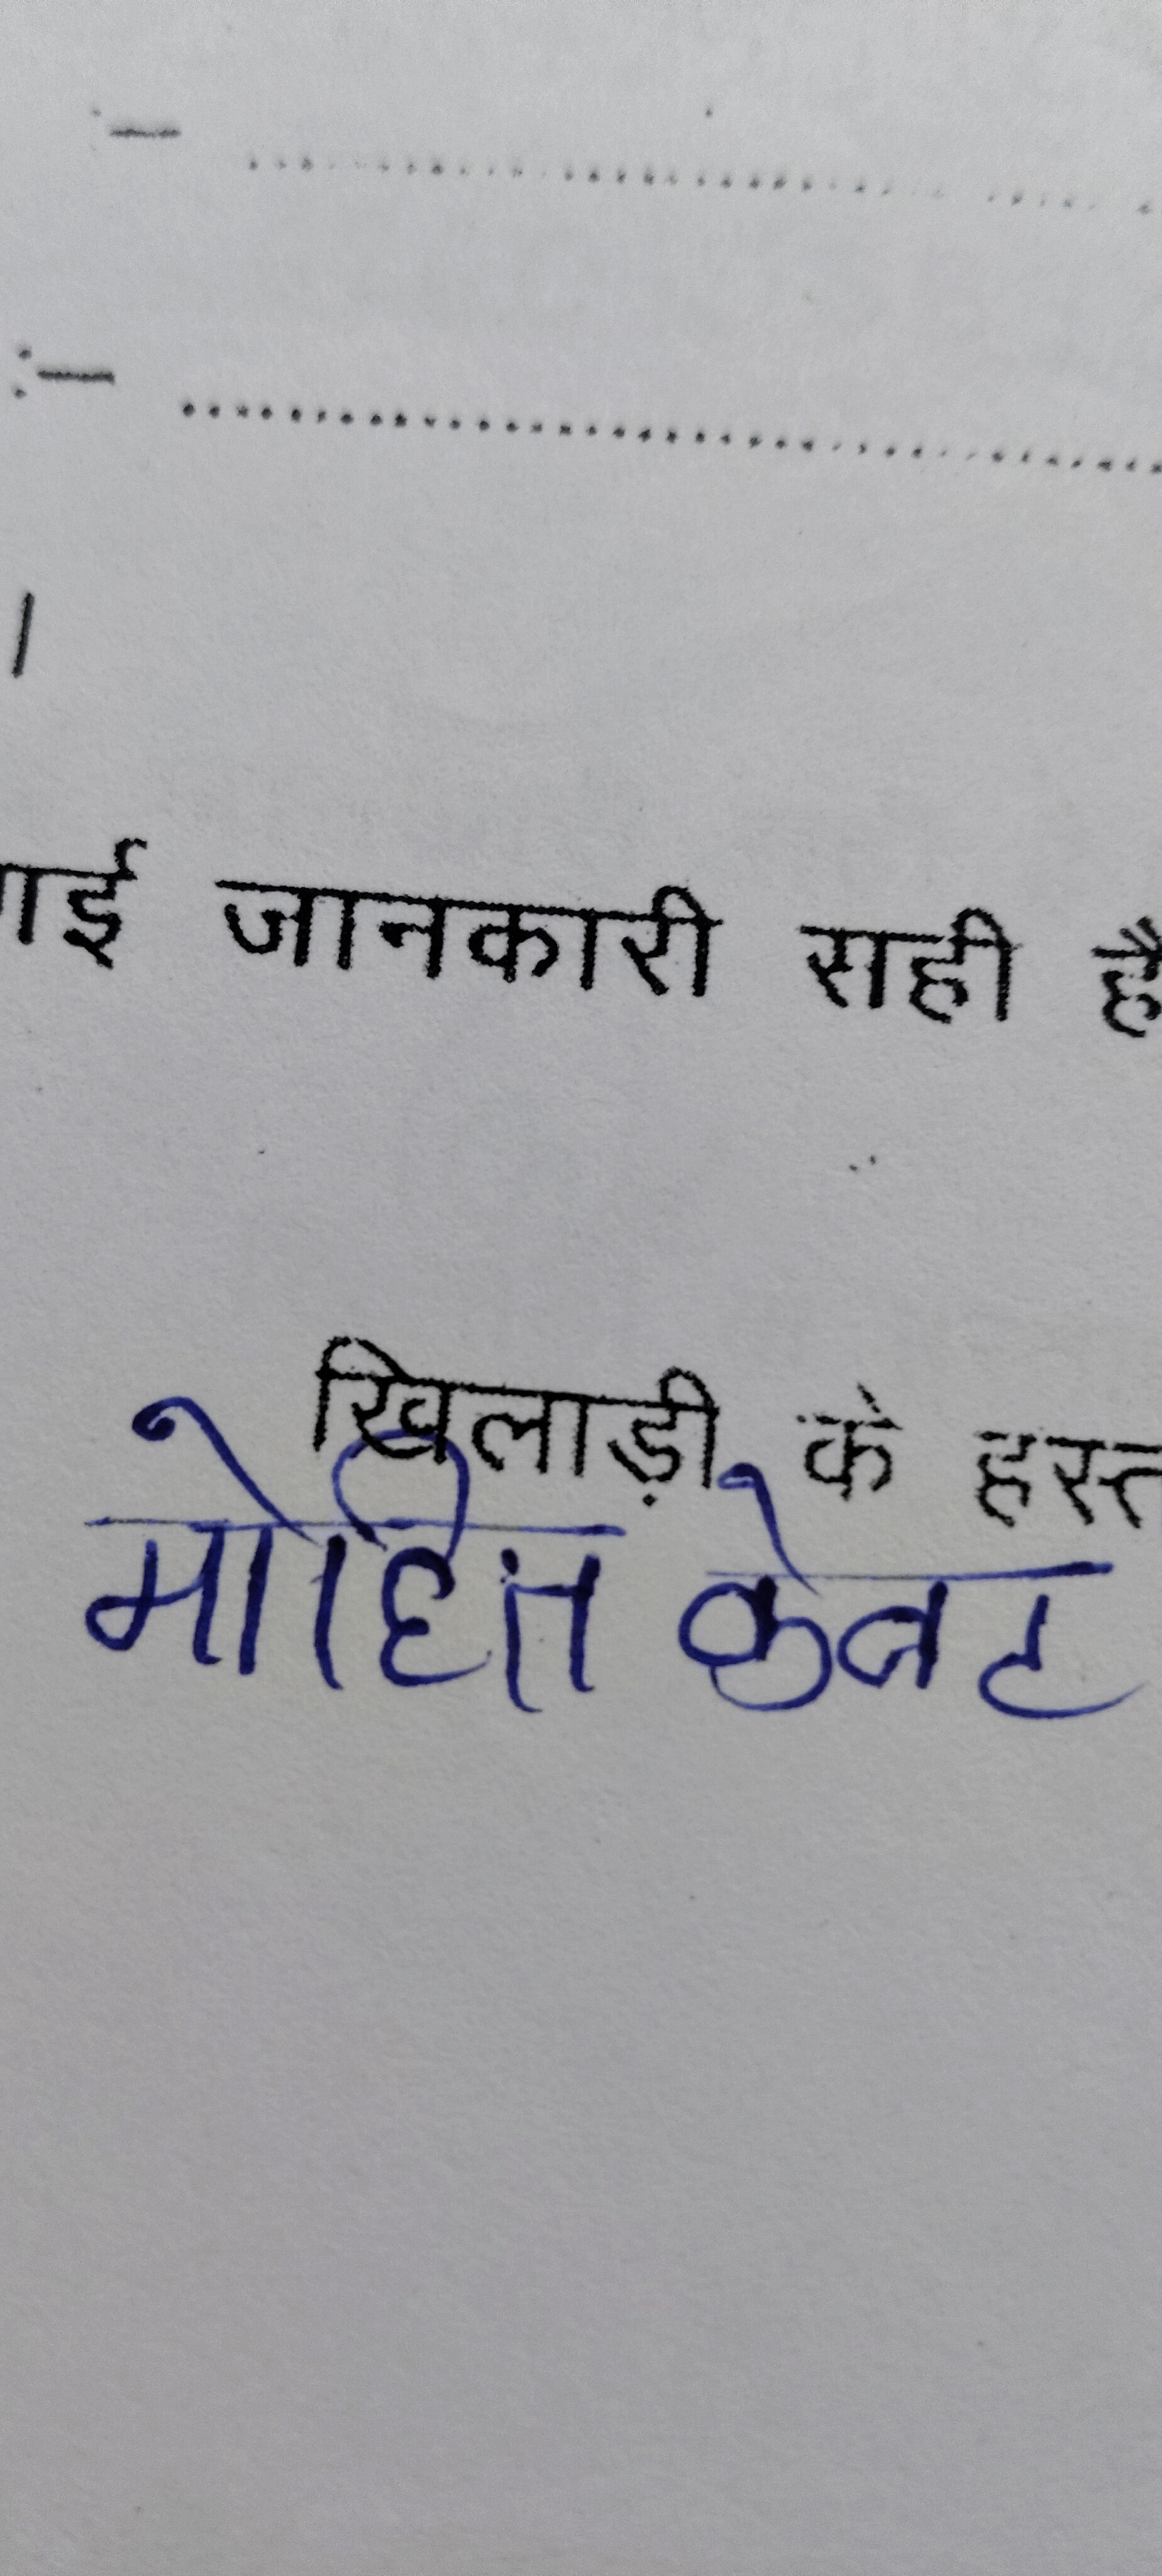 :— ....................................
:— ....................................
।
गई जानकारी सही है
खिलाड़ी के हस्त
मोहित केवट